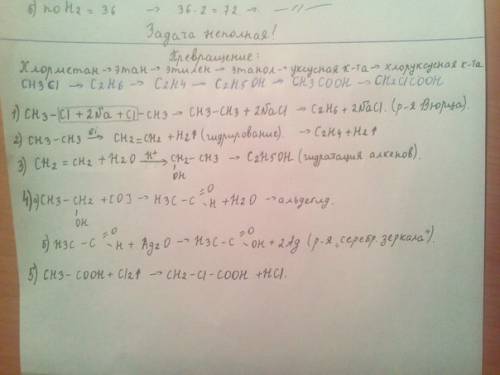 б) по H2 = 36 → 36·2 = 72 →
Задача неполная!
Превращение:
Хлорметан → этан → этилен → этанол → уксусная к-та → хлоруксусная к-та
CH3Cl → C2H6 → C2H4 → C2H5OH → CH3COOH → CH2ClCOOH
1) CH3-Cl + 2Na + Cl-CH3 → CH3-CH3 + 2NaCl → C2H6 + 2NaCl. (р-я Вюрца).
2) CH3-CH3 → CH2=CH2 + H2↑ (гидрирование) → C2H4 + H2↑
3) CH2=CH2 + H2O H+→ CH2-CH3 → C2H5OH (гидратация алкенов).
OH
4) а) CH3-CH2 + [O] → H3C-C =O -H + H2O → альдегид.
OH
б) H3C-C =O -H + Ag2O → H3C-C =O -OH + 2Ag (р-я „серебр. зеркала").
5) CH3-COOH + Cl2↑ → CH2-Cl-COOH + HCl.